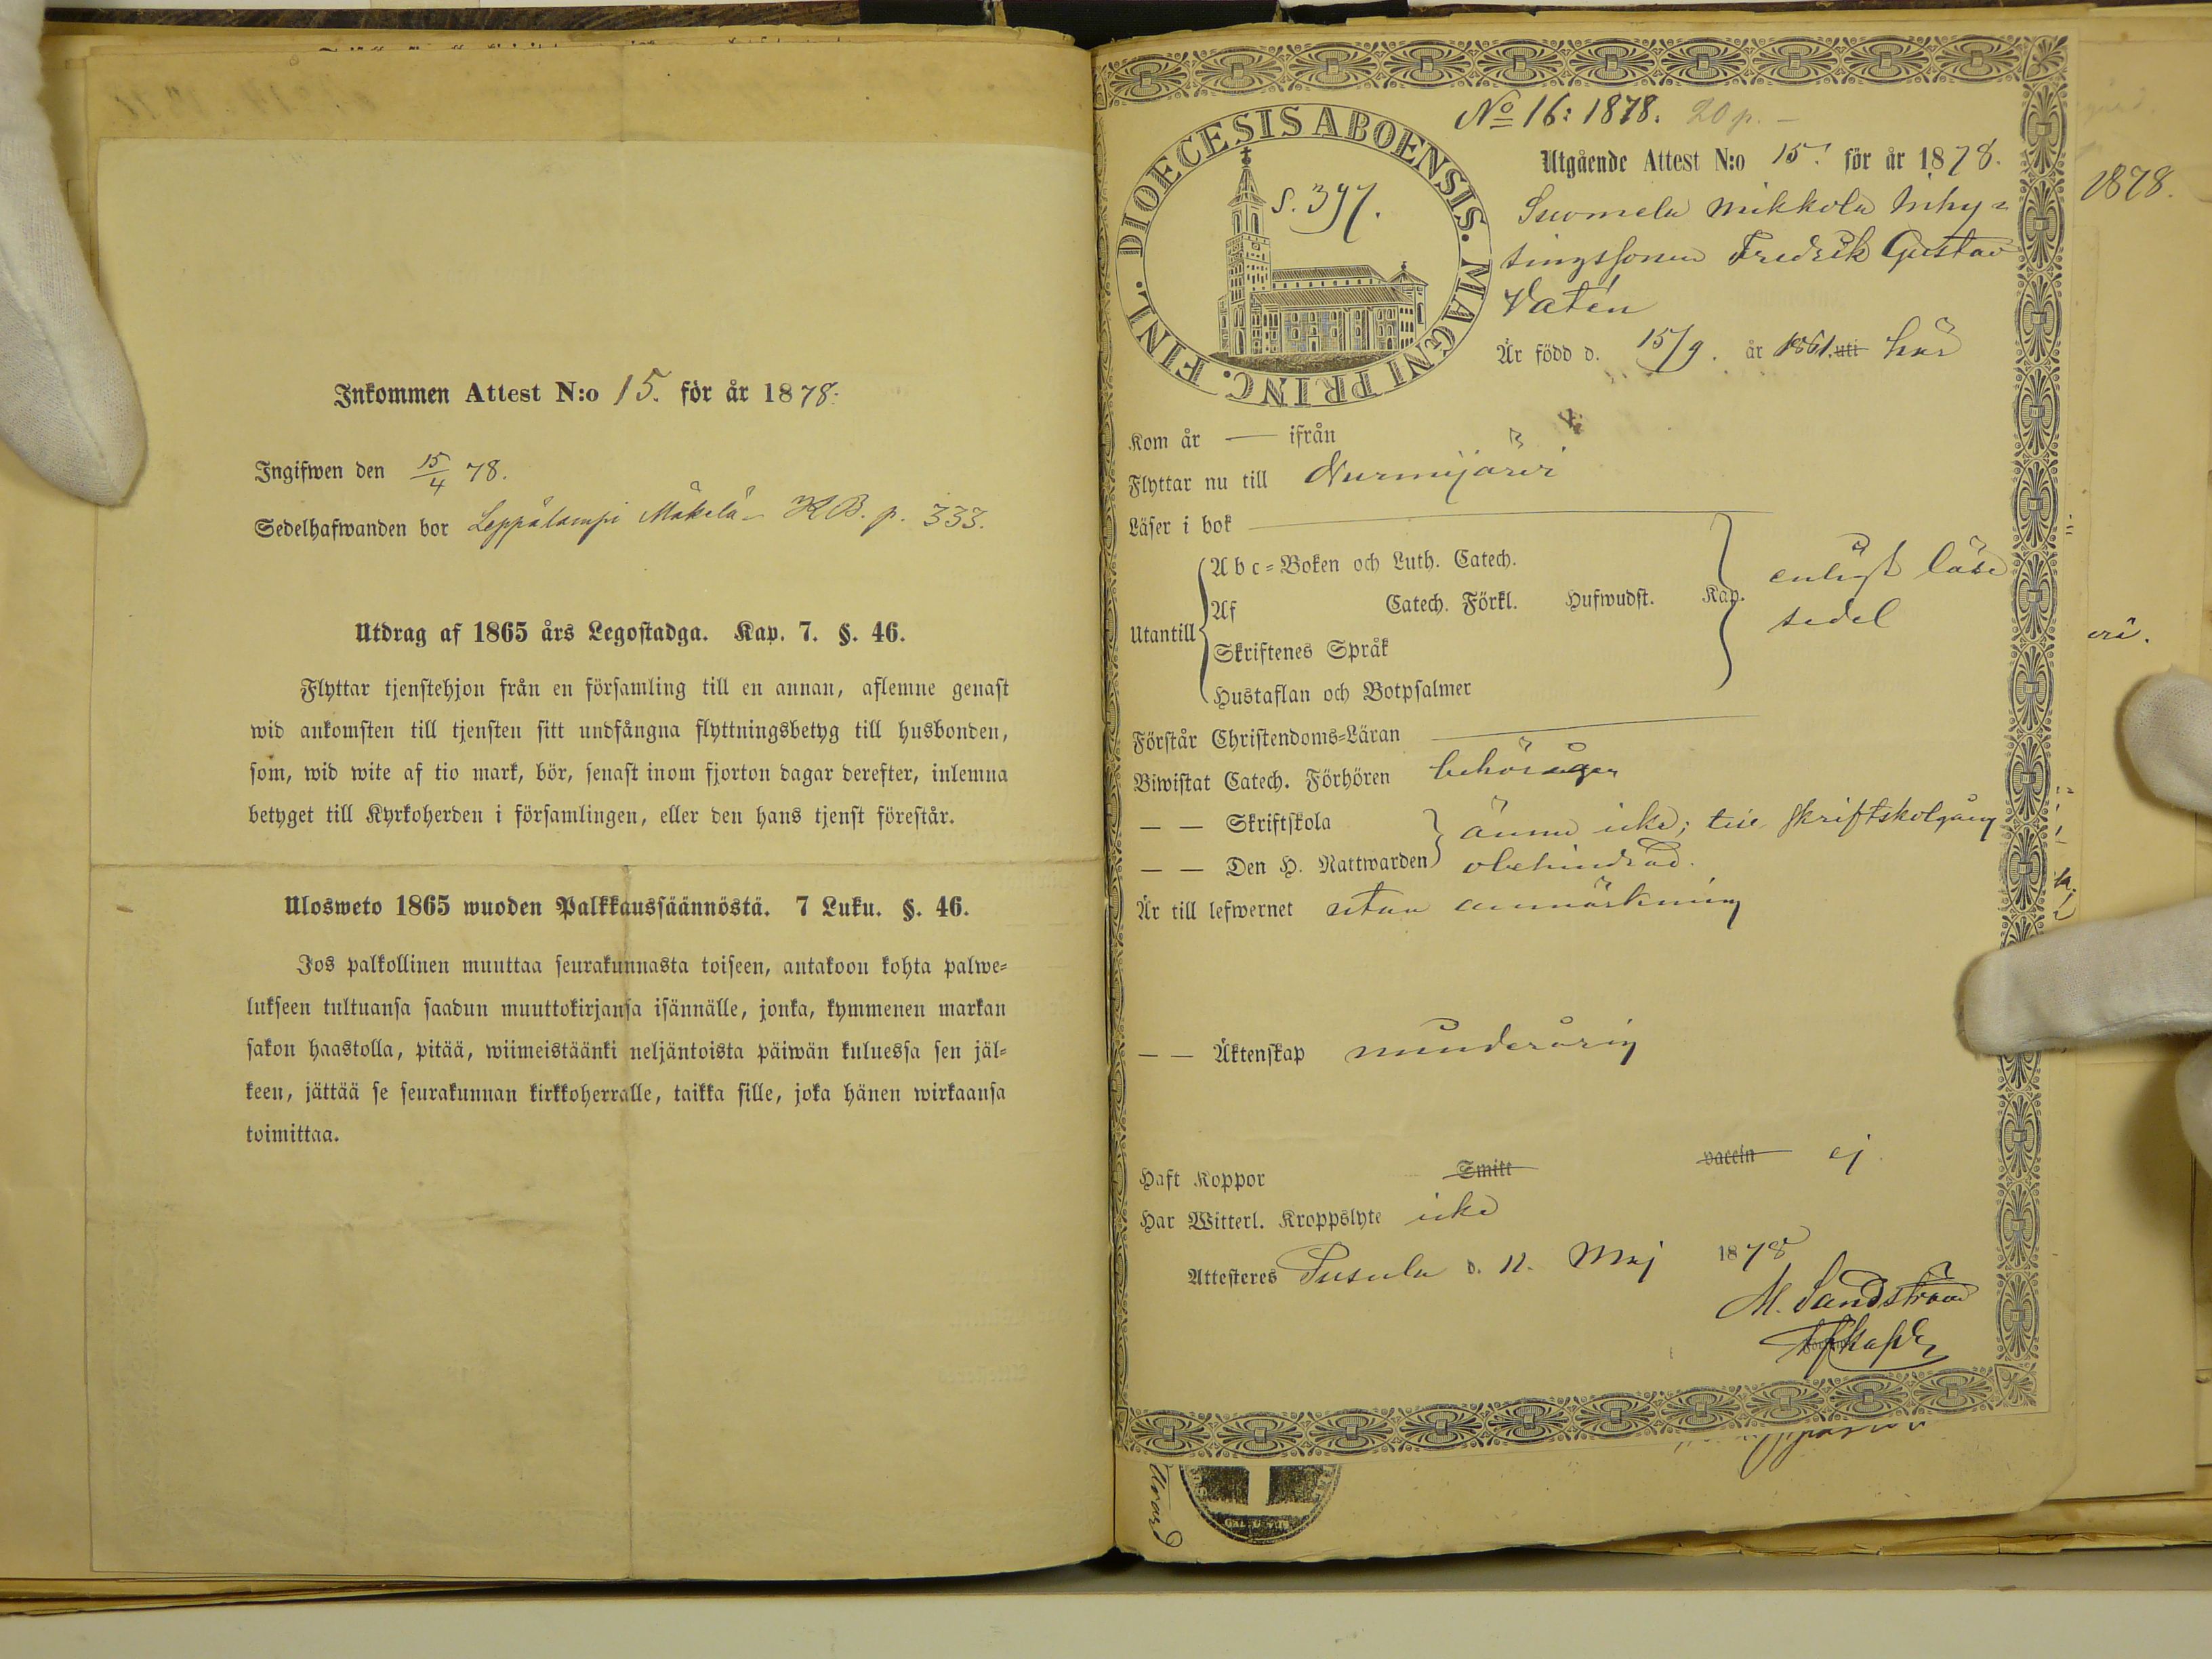 Inkommen Attest N:o 15. för år 1878.
Ingifwen den 15/4 78.
Sedelhafwanden bor Leppälampi Mäkelä - KB. p. 333.
Utdrag af 1865 års Legostadga. Kap. 7. §. 46.
Flyttar tjenstehjon från en församling till en annan, aflemne genast
wid ankomsten till tjensten sitt undfångna flyttningsbetyg till husbonden,
som, wid wite af tio mark, bör, senast inom fjorton dagar derefter, inlemna
betyget till Kyrkoherden i församlingen, eller den hans tjenst förestår.
Ulosweto 1865 wuoden Palkkaussäännöstä. 7 Luku. §. 46.
Jos palkollinen muuttaa seurakunnasta toiseen, antakoon kohta palwe=
lukseen tultuansa saadun muuttokirjansa isännälle, jonka, kymmenen markan
sakon haastolla, pitää, wiimeistäänki neljäntoista päiwän kuluessa sen jäl=
keen, jättää se seurakunnan kirkkoherralle, taikka sille, joka hänen wirkaansa
toimittaa.
No 16: 1878. 20 p. -
DIOECESIS ABOENSIS. MAGNI PRINC. FINL.
S. 397.
Utgående Attest N:o 15. för år 1878.
Suomela Mikkola Inhy=
singssonen Fredrik Gustav
Vatén
Är född d. 15/9. år 1861. uti här
Kom år — ifrån
Flyttar nu till Nurmijärvi
Läser i bok
Utantill
Abc=Boken och Luth. Catech.
Af Catech. Förkl. Hufwudst. Kap.
Skriftenes Språk
Hustaflan och Botpsalmer
enligt läse
sedel
Förstår Christendoms=Läran
Biwistat Catech. Förhören behörigen
— — Skriftskola ännu icke; till skriftskolgång
— — Den H. Nattwarden obehindrad.
Är till lefwernet utan anmärkning
— — Äktenskap minderårig
Haft Koppor Smitt vaccin ej
Har Witterl. Kroppslyte icke
Attesteras Pusula d. 11. Maj 1878
M. Sandström
1878.